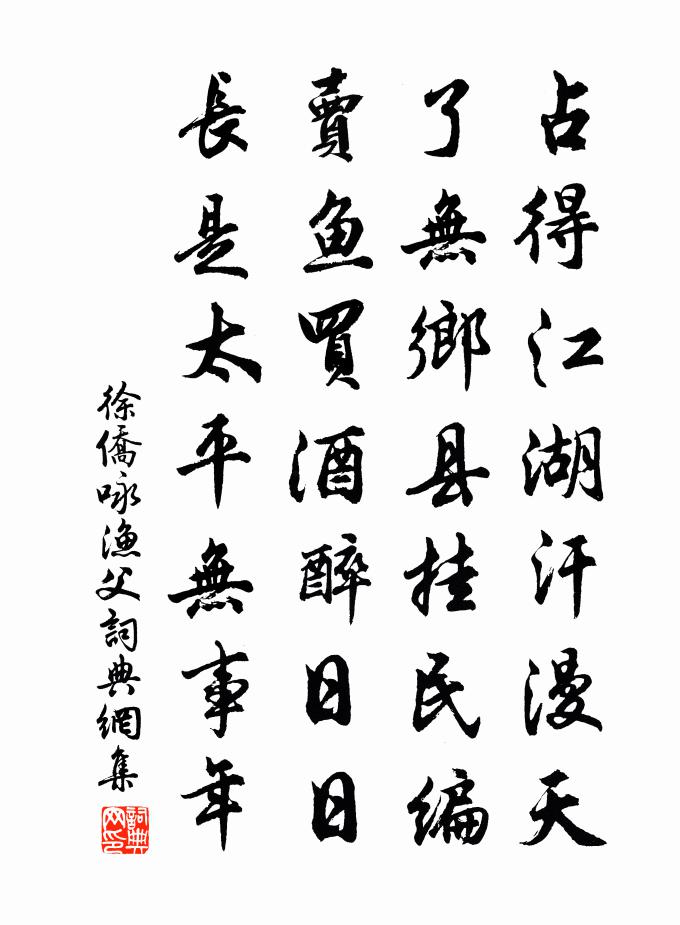 占得江湖汗漫天
了無鄉县挂民编
賣鱼買酒醉日日
長是太平無事年
徐僑咏漁父詞典網集
詞典网印